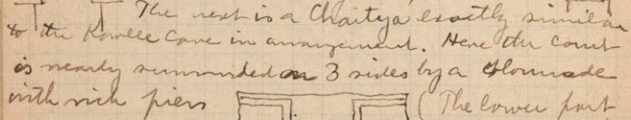 The next is a Chaitya exactly similar
to the Karlee Cave in arrangement. Here the court
is nearly surrounded on 3 sides by a Colonnade
with rich piers (The lower part